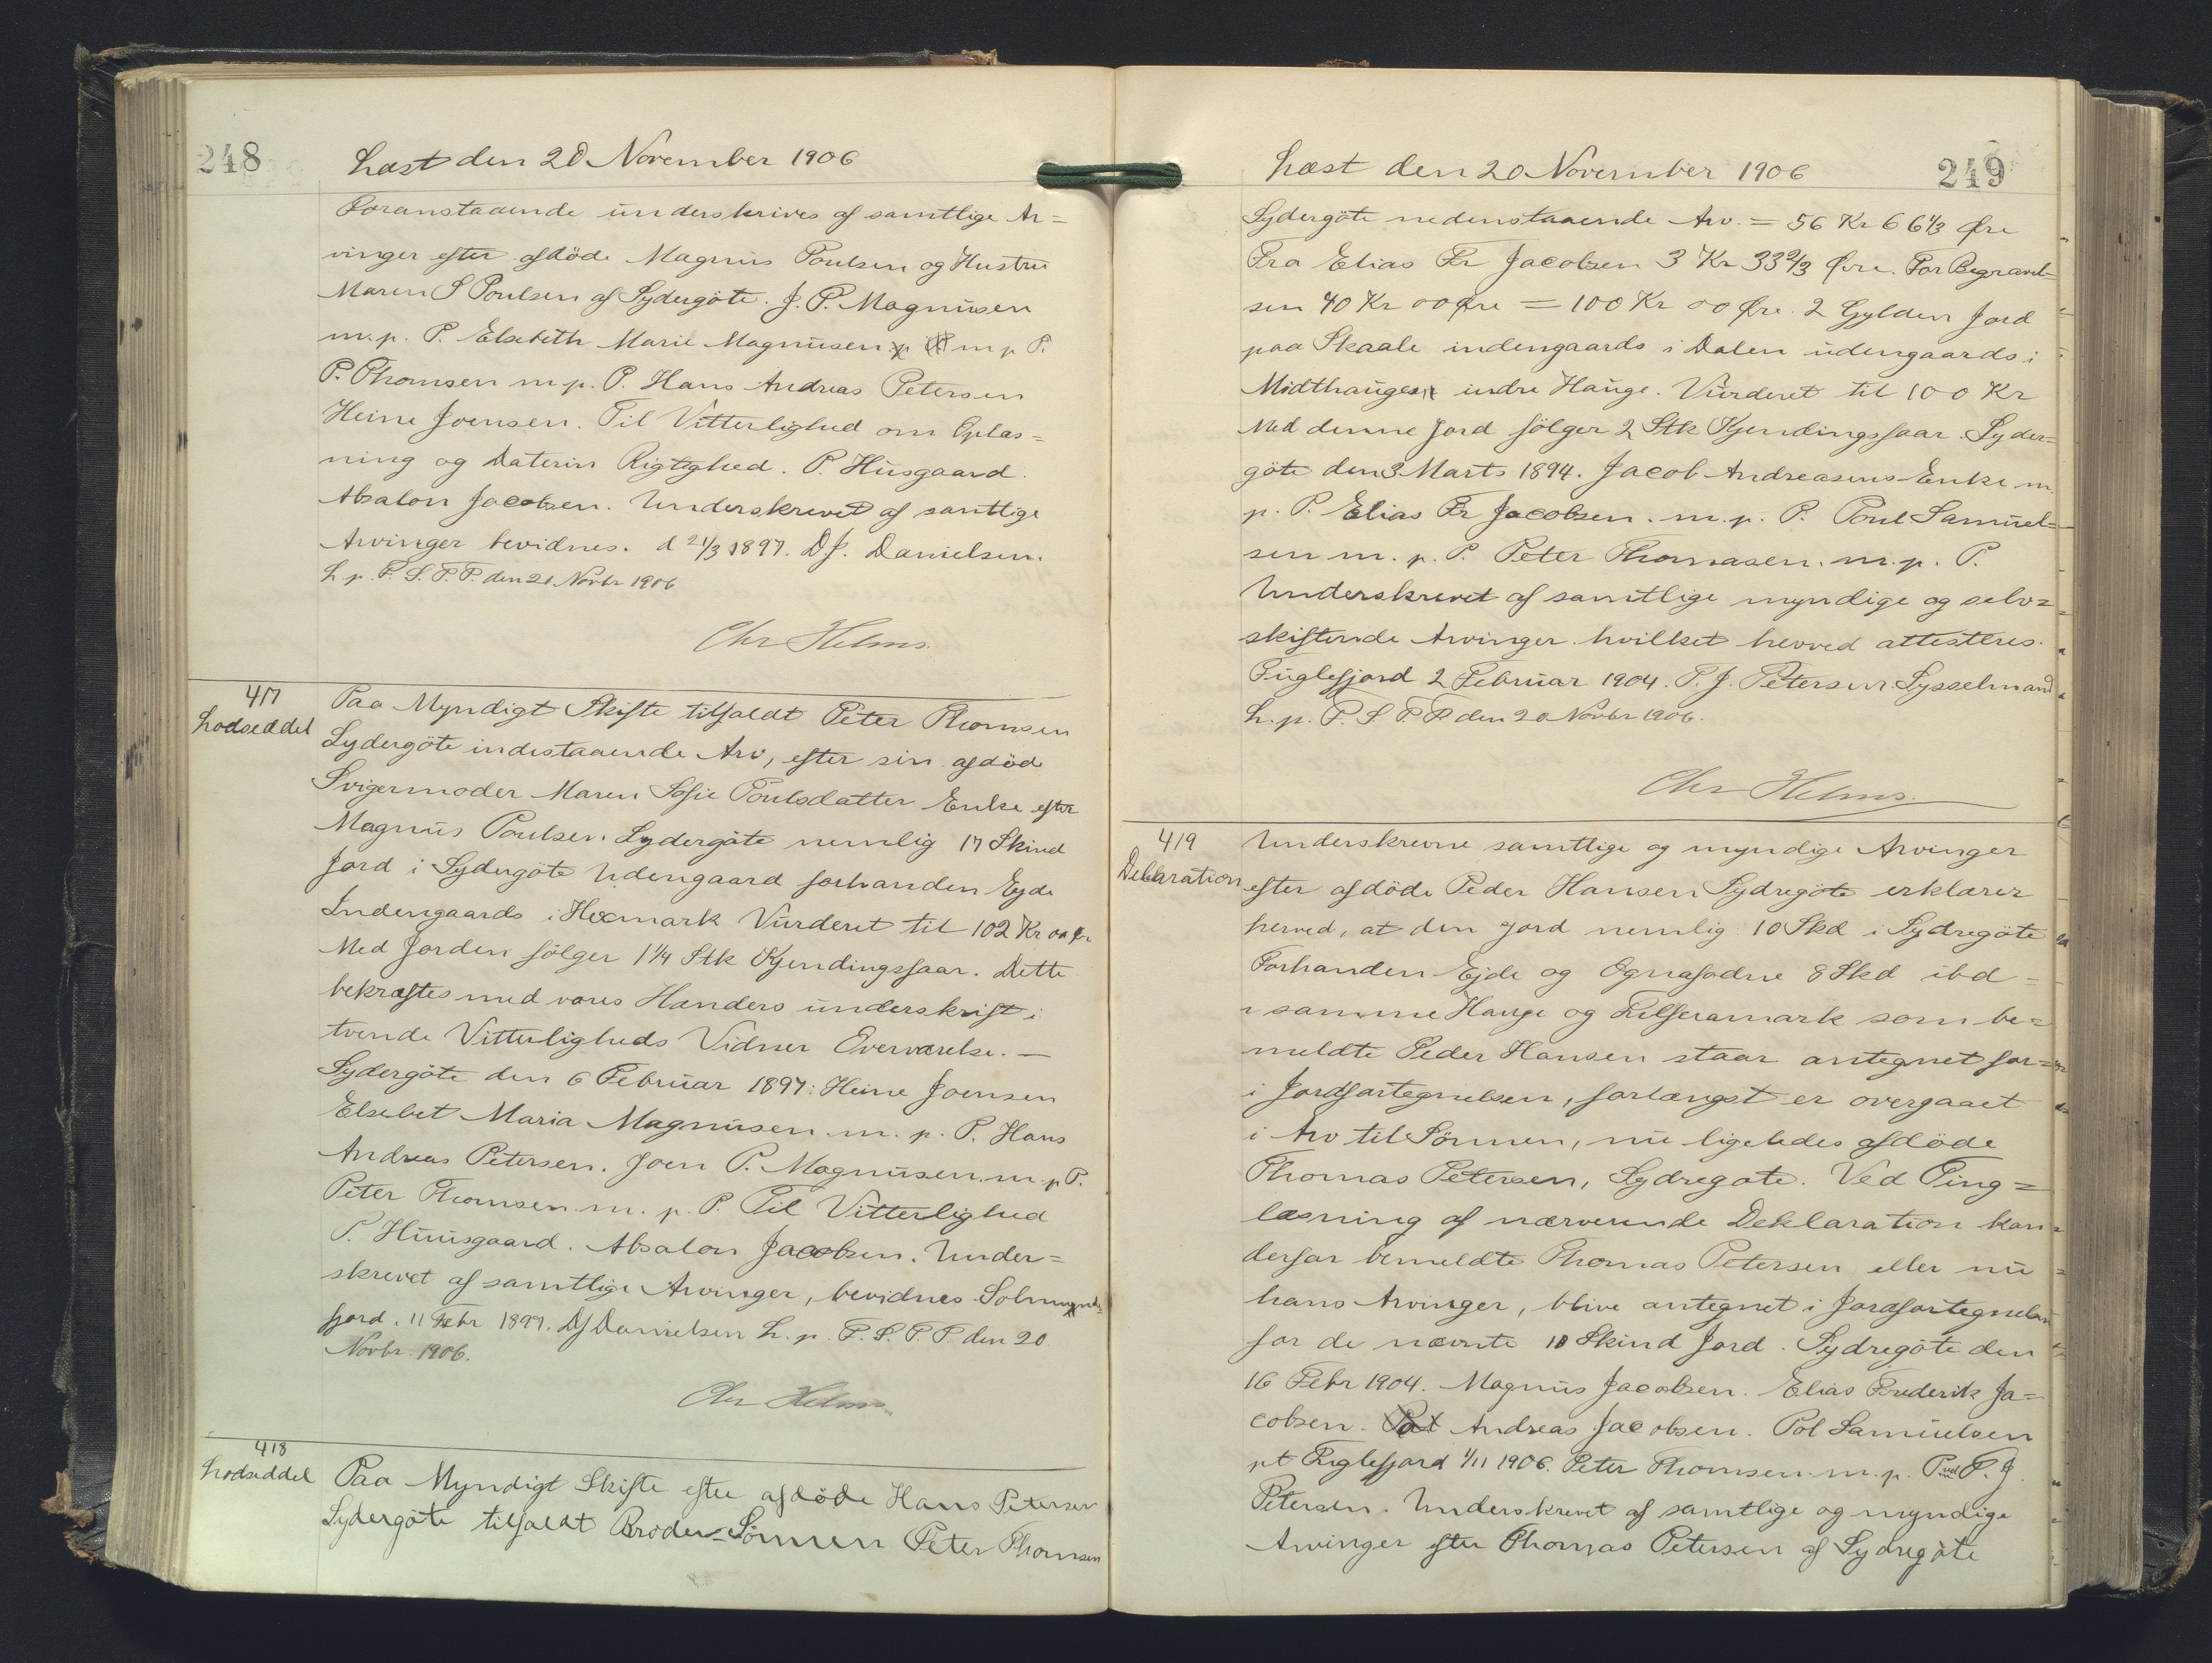 248
Læst den 20 November 1906
Foranstaaende underskrives af samtlige Ar=
vinger efter afdöde Magnus Poulsen og Hustru
Maren S Poulsen af Sydergöte. J. P. Magnusen
m.p. P. Elsebeth Marie Magnusen m p P.
P. Thomsen m p. P. Hans Andreas Petersen
Heine Joensen. Til Vitterlighed om Oplæs=
ning og Daterin Rigtighed. P. Husgaard.
Absalon Jacobsen. Underskrevet af samtlige
Arvinger bevidnes. d 21/3 1897. DJ. Danielsen.
L. p. F. S. P. P. den 20 Novbr 1906
Chr Helms.
417
Lodseddel
Paa Myndigt Skifte tilfaldt Peter Thomsen
Sydergöte indestaaende Arv, efter sin afdöd
Svigermoder Maren Sofie Poulsdatter Enke efter
Magnus Poulsen Sydergöte nemlig 17 Skind
Jord i Sydergöte Udengaard forhanden Ejde
Indengaards i Heemark Vurderet til 102 Kr oo Ör
Med Jorden fölger 1 1/4 Stk Kjendingsfaar. Dette
bekræftes med vores Hænders underskrift i
tvende Vitterligheds Vidner Overværelse. —
Sydergöte den 6 Februar 1897: Heine Joensen
Elsebet Maria Magnusen. m. p. P. Hans
Andreas Petersen. Joen P. Magnusen. m. p P.
Peter Thomsen. m. p. P. Til Vitterlighed
P. Huusgaard. Absalon Jacobsen. Under=
skrevet af samtlige Arvinger, bevidnes Solmynde
fjord. 11 Febr 1897. DJ Danielsen L. p. F. S. P. P. den 20
Novbr 1906.
Chr Helms.
418
Lodseddel
Paa Myndigt Skifte efter afdöde Hans Petersen
Sydergöte tilfaldt Broder-Sönnen Peter Thomsen
Læst den 20 November 1906
249
Sydergöte nedenstaaende Arv. = 56 Kr 66 1/3 Øre
Fra Elias Fr Jacobsen 3 Kr 33 2/3 Øre. For Begravel-
sen 40 Kr 00 Øre = 100 Kr 00 Øre. 2 Gylden Jord
paa Skaale indengaards i Dalen udengaards i
Midthaugen indre Hauge. Vurderet til 100 Kr
Med denne Jord fölger 2 Stk Kjendingsfaar. Syder=
göte den 3 Marts 1894. Jacob Andreasens Enke m.
p. P. Elias Fr Jacobsen. m. p. P. Poul Samuel=
sen m. p. P. Peter Thomasen. m. p. P.
Underskrevet af samtlige myndige og selv=
skiftende Arvinger hvilket herved attesteres.
Fuglefjord 2 Februar 1904. P. J. Petersen. Sysselmand
L. p. F. S. P. P. den 20 Novbr 1906.
Chr Helms.
419
Deklaration
Underskrevne samtlige og myndige Arvinger
efter afdöde Peder Hansen Sydregöte erklærer
herved, at den Jord nemlig 10 Skd i Sydregöte
Forhanden Ejde og Ognafadne 8 Skd ibd =
i samme Hauge og Lilferamark som be=
meldte Peder Hansen staar antegnet for=
i Jordfortegnelsen, forlængst er overgaaet
i Arv til Sönnen, nu ligeledes afdöde
Thomas Petersen, Sydregöte. Ved Ting=
læsning af nærværende Deklaration kan
derfor bemeldte Thomas Petersen eller nu
hans Arvinger, blive antegnet i Jordfortegnelsen
for de nævnte 10 Skind Jord. Sydregöte den
16 Febr 1904. Magnus Jacobsen. Elias Frederik Ja=
cobsen. Andreas Jacobsen. Pol Samuelsen
pt Fuglefjord 1/11 1906. Peter Thomsen. m. p. P. ved P. J.
Petersen. Underskrevet af samtlige og myndige
Arvinger efter Thomas Petersen af Sydregöte